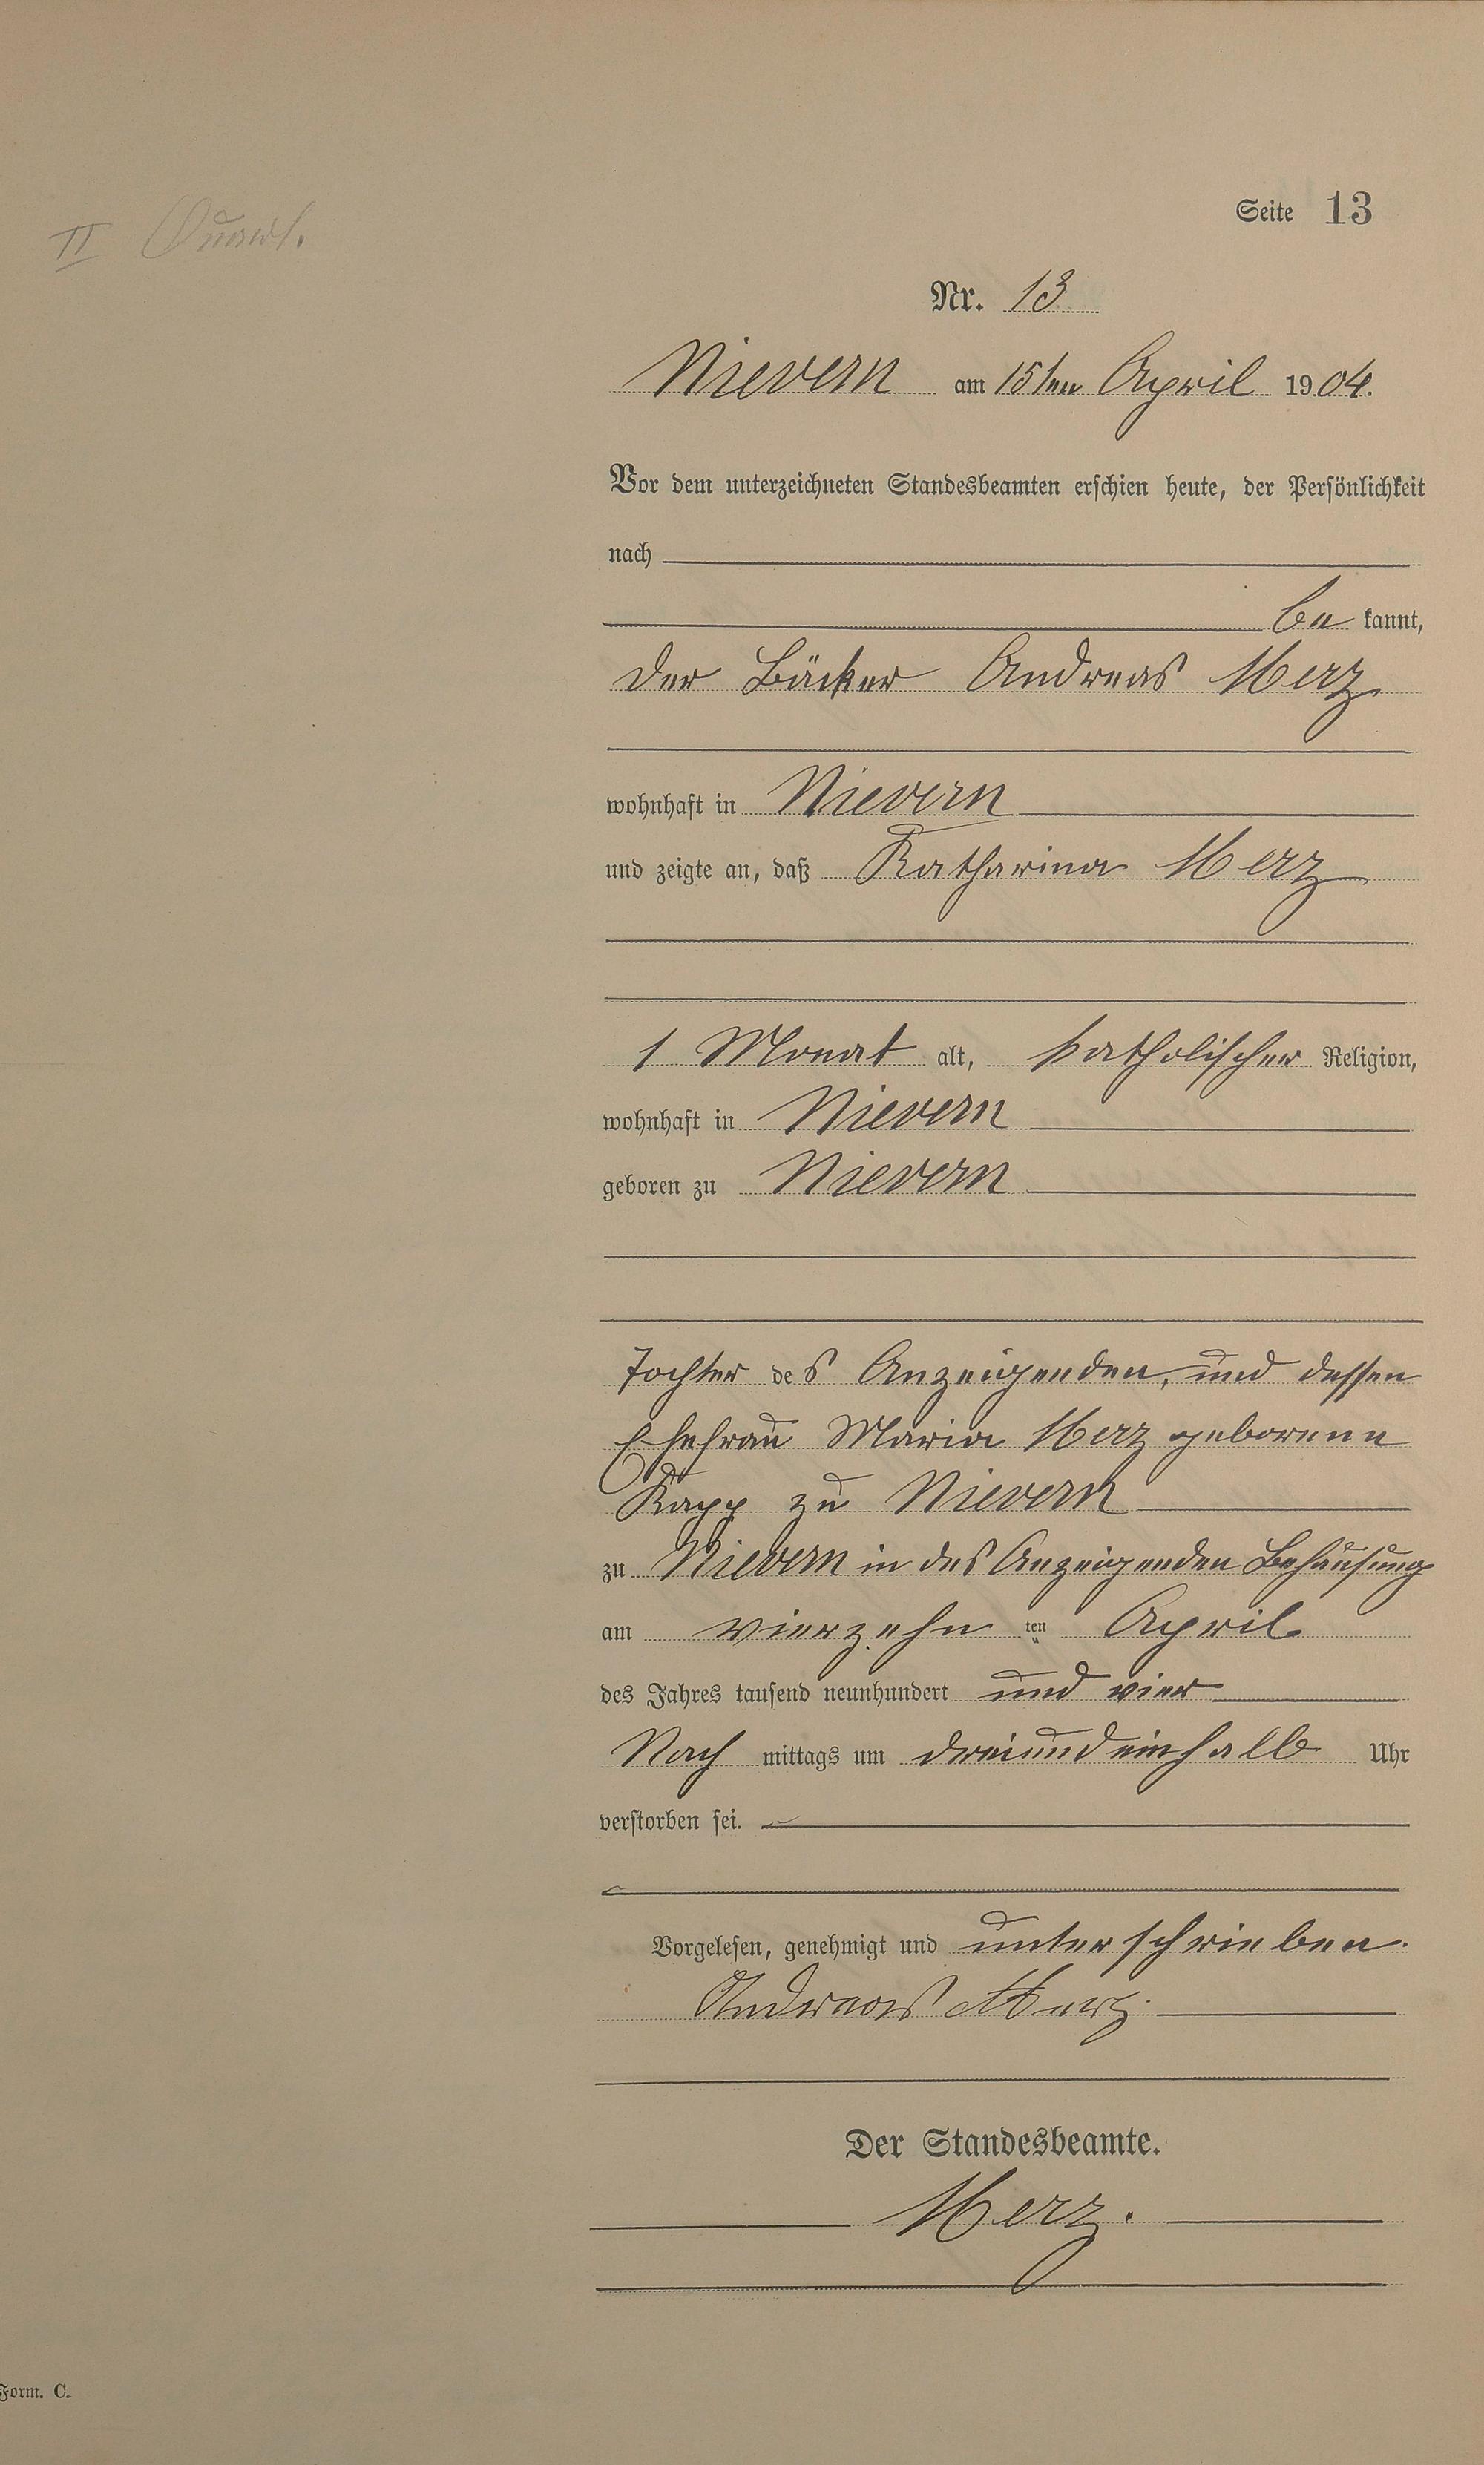 Seite 13
II Quart.
Nr. 13
Nievern am 15ten April 1904.
Vor dem unterzeichneten Standesbeamten erschien heute, der Persönlichkeit
nach
be kannt,
der Bäcker Andreas Merz
wohnhaft in Nievern
und zeigte an, daß Katharina Merz
1 Monat alt, katholischer Religion,
wohnhaft in Nievern
geboren zu Nievern
Tochter des Anzeigenden, und dessen
Ehefrau Maria Merz geborene
Kapp zu Nievern
zu Nievern in des Anzeigenden Behausung
am vierzehn ten April
des Jahres tausend neunhundert und vier
Nach mittags um dreiundeinhalb Uhr
verstorben sei.
Vorgelesen, genehmigt und unterschrieben.
Andreas Merz.
Der Standesbeamte.
Merz.
Form. C.